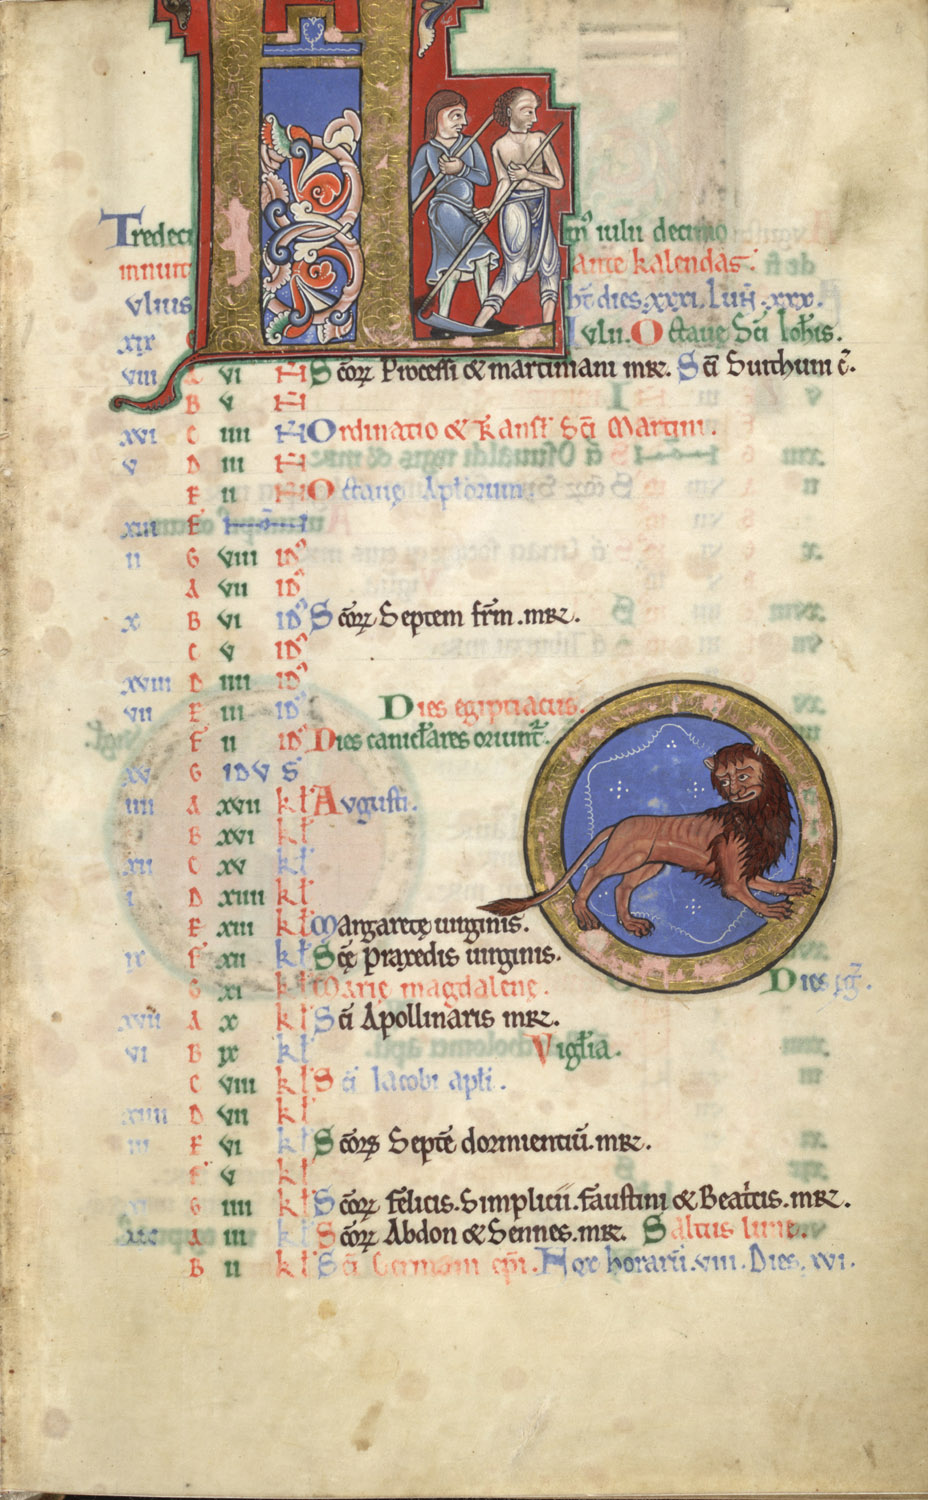 Tredeci m̄s iulii decimo
innuit ante kalendas.
vlius hт̄ dies .xxxi. Luñ .xxx.
xix G Iulii. Octaue Sc̄i Ioħis.
viii A vi N Sc̄orꝝ Processi & martiniani mr̄. Sc̄i Suithuni c̄.
B v N
xvi C iiii N Ordinatio & Transł Sc̄i Martini.
v D iii N
E ii N Octauę Apłorum
xiii F
ii G viii iđ
A vii iđ
x B vi iđ Sc̄orꝝ Septem fr̄m .mr̄.
C v iđ
xviii D iiii iđ
vii E iii iđ Dies egiptiacus.
F ii iđ Dies caniculares oriunt̄.
xv G IDVS
iiii A xvii kł Augusti.
B xvi kł
xii C xv kł
i D xiiii kł
E xiii kł Margaretę uirginis.
ix F xii kł Sc̄ę praxedis uirginis.
G xi kł Marię magdalenę. Dies eḡ.
xvii A x kł Sc̄i Apollinaris mr̄.
vi B ix kł Vigłia.
C viii kł Sc̄i Iacobi apłi.
xiiii D vii kł
iii E vi kł Sc̄orꝝ Septē dormientiū. mr̄.
F v kł
xi G iiii kł Sc̄orꝝ felicis. Simplicii. faustini & Beat̄cis. mr̄.
xix A iii kł Sc̄orꝝ Abdon & Sennes. mr̄. Saltus lune.
B ii kł Sc̄i Germani ep̄i. Nox horarū .viii. Dies. xvi.